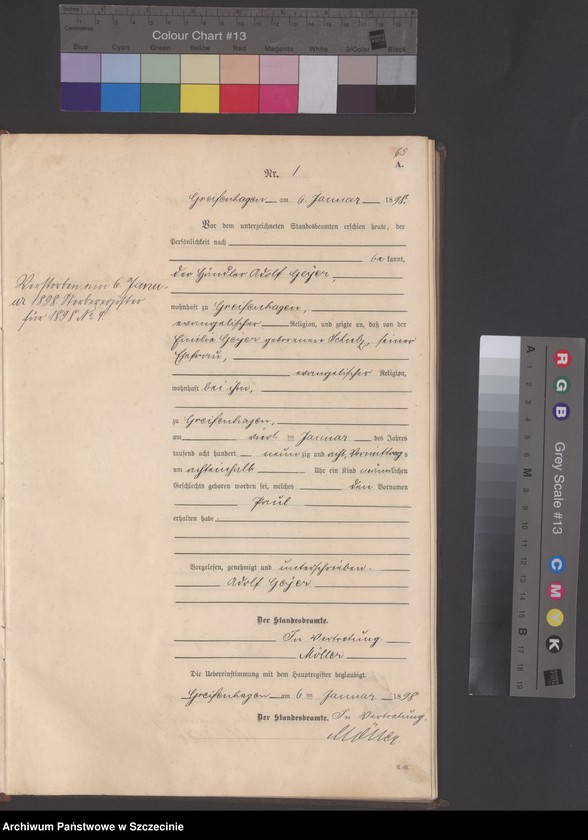 Colour Chart #13
Blue Cyan Green Yellow Red Magenta White 3/Color Black
65
A.
Nr. 1
Greifenhagen am 6. Januar 1898.
Vor dem unterzeichneten Standesbeamten erschien heute, der
Persönlichkeit nach
be kannt,
der Händler Adolf Geyer,
wohnhaft zu Greifenhagen,
evangelischer Religion, und zeigte an, daß von der
Emilie Geyer geborenen Schulz, seiner
Ehefrau,
evangelischer Religion,
wohnhaft bei ihm,
zu Greifenhagen,
am Januar des Jahres
tausend acht hundert neun zig und acht, Vormittags
um achteinhalb Uhr ein Kind männlichen
Geschlechts geboren worden sei, welches den Vornamen
Paul
erhalten habe.
Vorgelesen, genehmigt und unterschrieben.
Adolf Geyer
Der Standesbeamte.
In Vertretung.
Möller
Die Uebereinstimmung mit dem Hauptregister beglaubigt.
Greifenhagen am 6ten Januar 1898
Der Standesbeamte. In Vertretung.
Möller.
Verstorben am 6. Janu-
ar 1898. Sterberegister
für 1898 No 4.
Grey Scale #13
R
G
B
C
M
Y
K
A 1 2 3 4 5 6 M 8 9 10 11 12 13 14 15 B 17 18 19
Archiwum Państwowe w Szczecinie